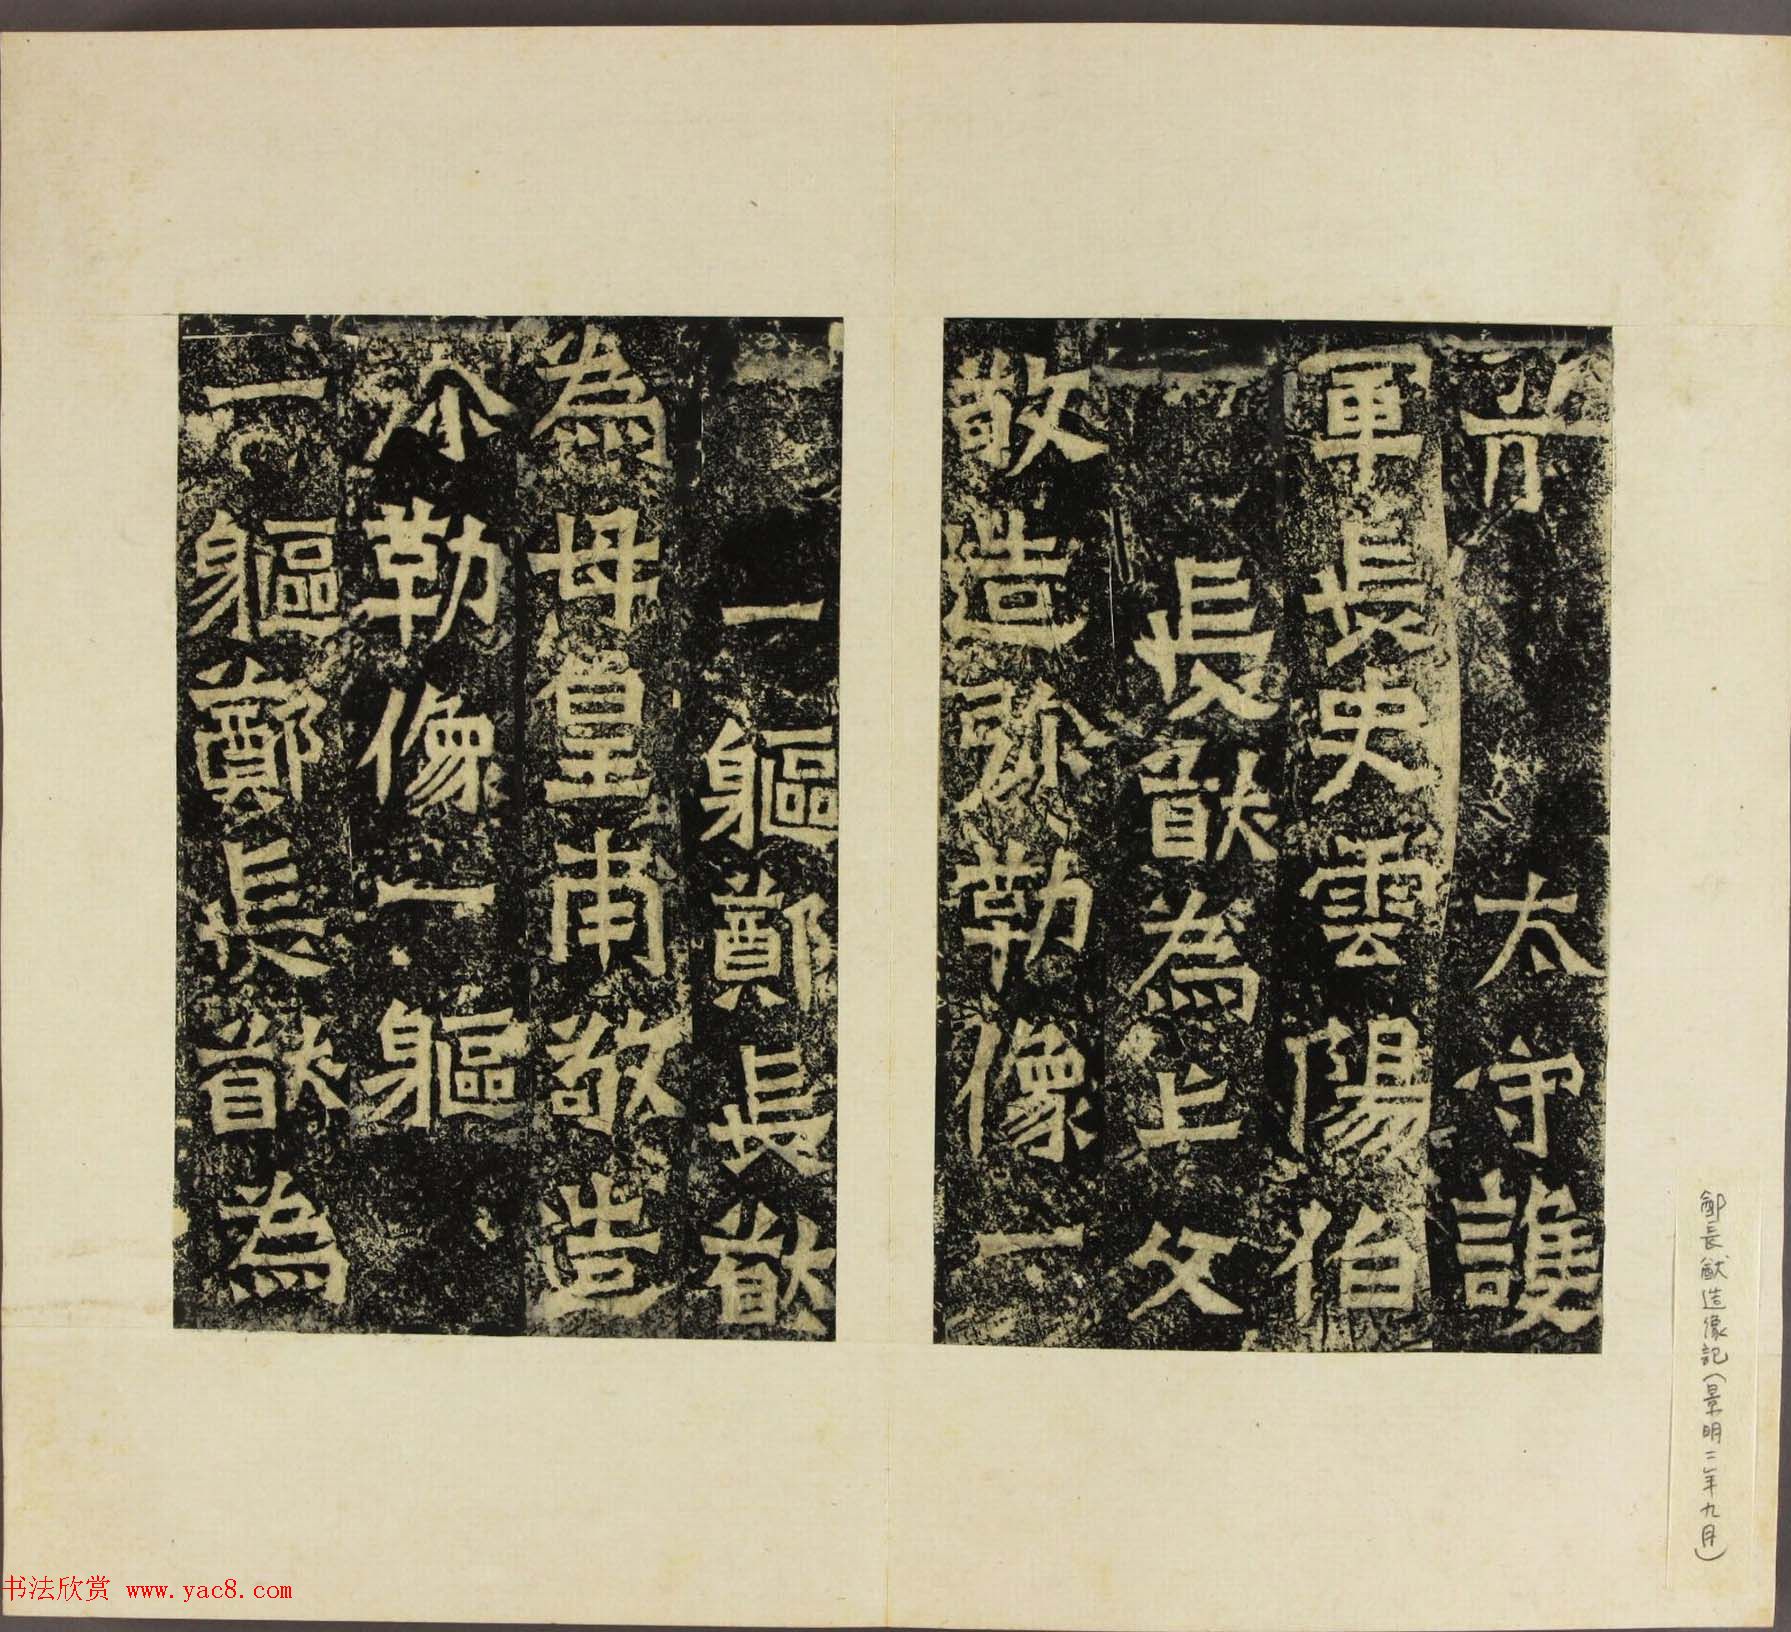 前太守護
軍長史雲陽伯
長猷為亡父
敬造弥勒像一
一軀鄭長猷
為母皇甫敬造
弥勒像一軀
一軀鄭長猷為
鄭長猷造像記（景明二年九月）
书法欣赏 www.yac8.com